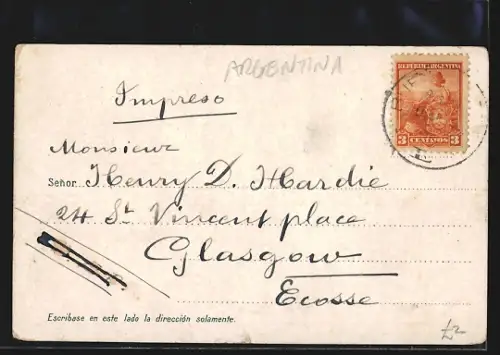 ARGENTINA
REPUBLICA ARGENTINA
3 CENTAVOS 3
Impreso
Monsieur
Señor Henry D. Hardie
24 St Vincent place
Glasgow
Ecosse
Escribase en este lado la dirección solamente.
£2